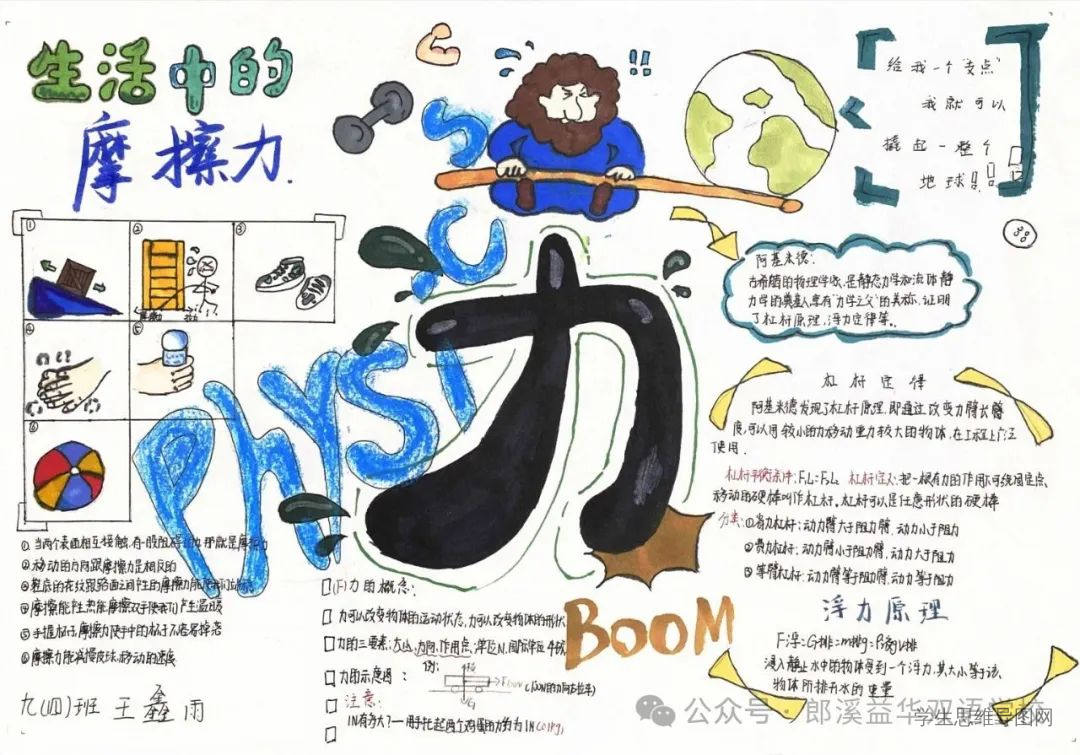 生活中的
摩擦力
PHYSICS
力
给我一个“支点”
我就可以
撬起一整个
地球!!!
38
阿基米德:
古希腊的物理学家,是静态力学和流体静
力学的奠基人,享有“力学之父”的美称,证明
了杠杆原理,浮力定律等。
① ② ③
④ ⑤
⑥
杠杆定律
阿基米德发现了杠杆原理,即通过改变力臂长
度,可以用较小的力移动重力较大的物体,在工程上广泛
使用.
杠杆平衡条件:F₁L₁=F₂L₂ 杠杆定义:把一根有力的作用下可绕固定点
移动的硬棒叫作杠杆。杠杆可以是任意形状的硬棒
分类:①省力杠杆:动力臂大于阻力臂,动力小于阻力
②费力杠杆:动力臂小于阻力臂,动力大于阻力
③等臂杠杆:动力臂等于阻力臂,动力等于阻力
浮力原理
F浮=G排=m排g=ρ液gV排
浸入静止水中的物体受到一个浮力,其大小等于该
物体所排开水的重量
①当两个表面相互接触,有一股阻碍的力,那就是摩擦力
②移动的方向跟摩擦力是相反的
③鞋底的花纹跟路面之间产生的摩擦力能
④摩擦能产生热能,摩擦双手使我们产生温暖
⑤手握杯子,摩擦力使手中的杯子不容易掉落
⑥摩擦力能减慢皮球移动的速度
九(四)班 王鑫雨
(F)力的概念:
力可以改变物体的运动状态,力可以改变物体的形状
力的三要素:大小、方向、作用点,单位N,国际单位牛顿
力的示意图: 例:
注意:
1N有多大?一用手托起两个鸡蛋的力约为1N(0.1kg)
BOOM
公众号·郎溪益华双语学校
学生思维导图网